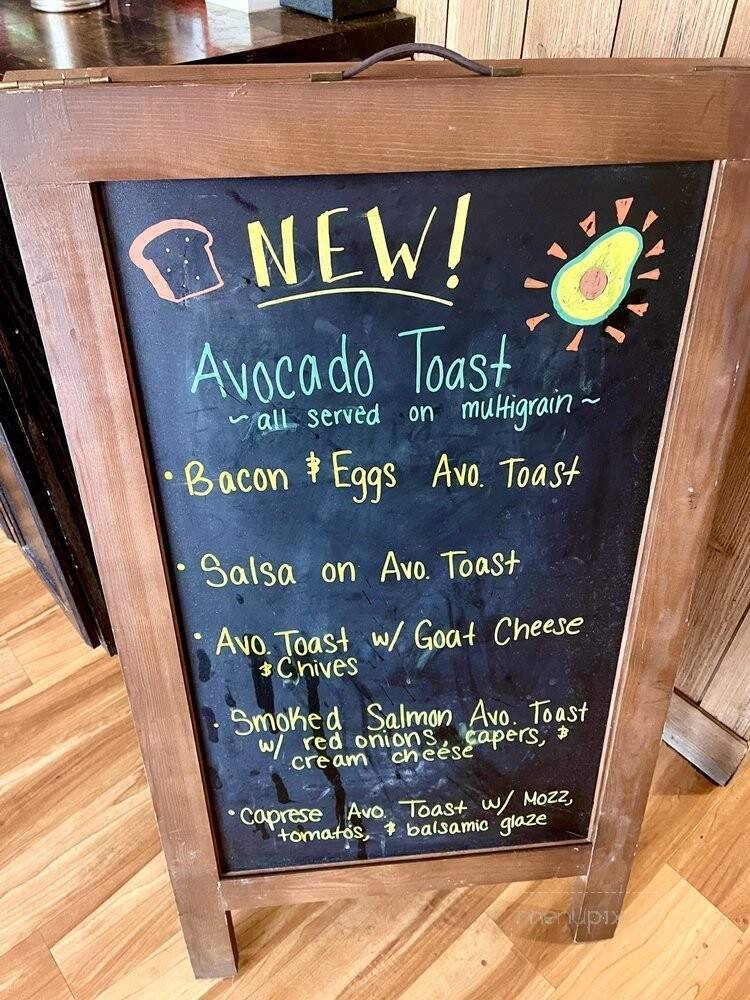 NEW!
Avocado Toast
~ all served on multigrain ~
• Bacon & Eggs Avo. Toast
• Salsa on Avo. Toast
• Avo. Toast w/ Goat Cheese
& Chives
• Smoked Salmon Avo. Toast
w/ red onions, capers, &
cream cheese
• Caprese Avo. Toast w/ Mozz,
tomatos, & balsamic glaze
menupix